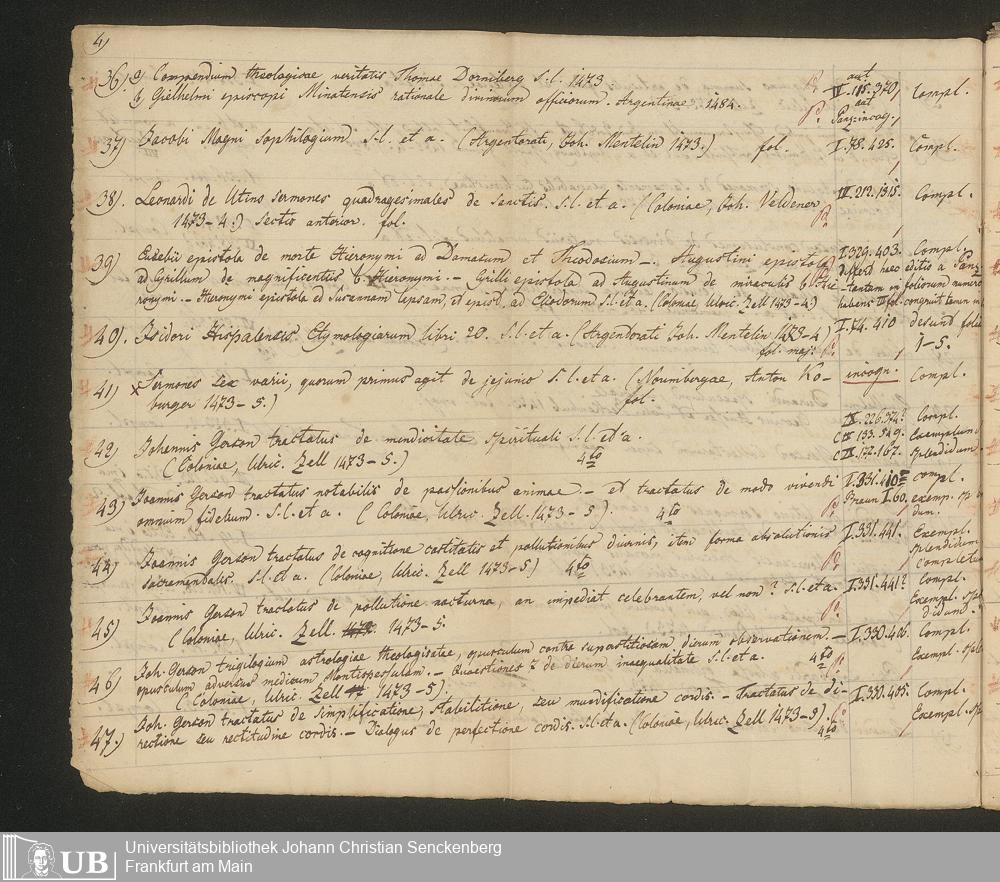 4)
36) a) Compendium theologicae veritatis Thomae Dorniberg S. l. 1473
b) Gielhelmi episcopi Minatensis rationale divinorum officiorum. Argentinae 1484.
aut
IV. 185. 370,
aut
Panz: incog.
Compl.
37) Jacobi Magni Sophilogium S. l. et a. (Argentorati, Joh. Mentelin 1473.) fol. I. 78. 425. Compl.
38). Leonardi de Utino sermones quadragesimales de Sanctis. S. l. et a. (Coloniae, Joh. Veldener
1473-4.) Sectio anterior. fol.
IV. 212. 1315. Compl.
39) Eusebii epistola de morte Hieronymi ad Damasum et Theodosium -. Augustini epistola
ad Cyrillum de magnificentiis b. Hieronymi. - Cyrilli epistola ad Augustinum de miraculis b. Hie
ronymi. - Hieronymi epistola ad Susannam lapsam, et epist. ad Eliodorum S. l. et a. (Coloniae, Ulric. Zell 1473-4.)
I. 329. 403. Compl.
Differt haec editio a Panz
tantum in foliorum numero
habens fol. congruit tamen in
40). Isidori Hispalensis Etymologiarum libri 20. S. l. et a. (Argentorati Joh. Mentelin 1473-4)
fol. maj:
I. 74. 410 desunt folia
1-5.
41) x Sermones sex varii, quorum primus agit de jejunio S. l. et a. (Nournbergae, Anton Ko-
burger 1473-5.) fol.
incogn. Compl.
42) Johannis Gerson tractatus de mendicitate spirituali S. l. et a.
(Coloniae, Ulric. Zell 1473-5.) 4to
IX. 226. 374? Compl.
c IV. 133. 549. Exemplum
c IX. 177. 167. splendidum.
43) Joannis Gerson tractatus notabilis de passionibus animae. - et tractatus de modo vivendi
omnium fidelium. S. l. et a. (Coloniae, Ulric. Zell. 1473-5). 4to
I. 331. 410 compl.
Braun I. 60. exemp. sp
dum.
44) Joannis Gerson tractatus de cognitione castitatis et pollutionibus diurnis, item forma absolutionis
sacramentalis. S. l. et a. (Coloniae, Ulric. Zell 1473-5) 4to
I. 331. 441. Exempl.
splendidum
completum
45) Joannis Gerson tractatus de pollutione nocturna, an impediat celebrantem, vel non? S. l. et a.
(Coloniae, Ulric. Zell. 1473-5.
I. 331. 441? Compl.
Exempl. splen
didum.
46) Joh. Gerson trigilogium astrologiae theologisatae, opusculum contra superstitiosam dierum observationem. -
opusculum adversus medicum Montispessulam. - Quaestiones 2 de dierum inaequalitate S. l. et a. 4to
(Coloniae, Ulric. Zell 1473-5).
I. 330. 406. Compl.
Exempl. splen
47.) Joh. Gerson tractatus de simplificatione, stabilitione, seu mundificatione cordis. - Tractatus de di-
rectione seu rectitudine cordis. - Dialogus de perfectione cordis. S. l. et a. (Coloniae, Ulric. Zell 1473-9). 4to
I. 330. 405. Compl.
Exempl. sple
UB
Universitätsbibliothek Johann Christian Senckenberg
Frankfurt am Main